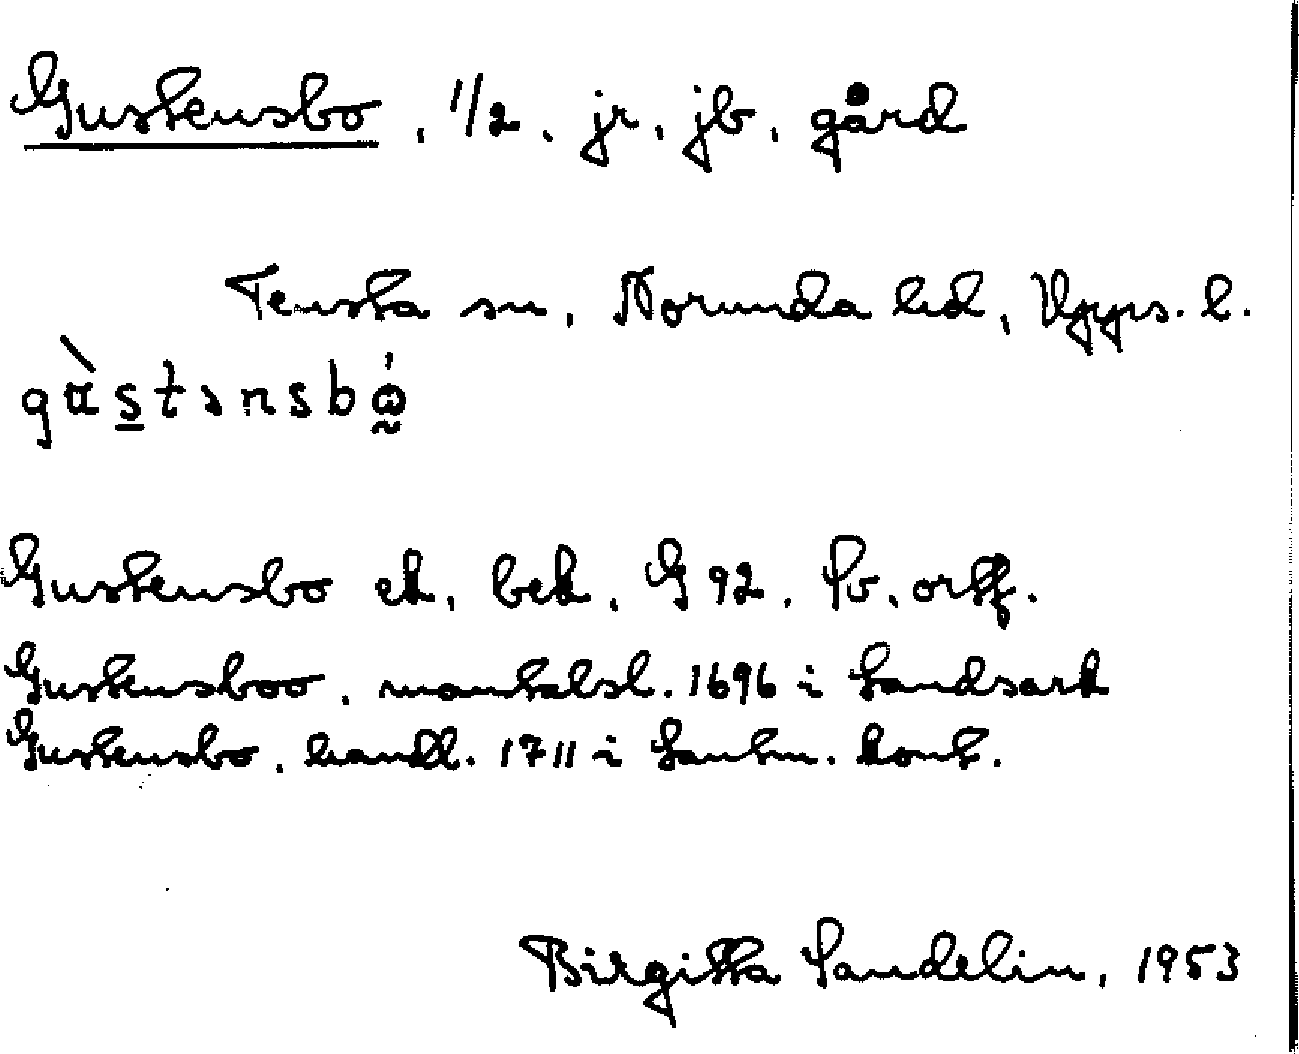 Gustensbo, 1/2, jr, jb, gård
Tensta sn, Norunda hd, Upps. l.
gɑ̀stənsbɷ́
Gustensbo ek, bek, G 92. Sv. ortf.
Gustensboo, mantalsl. 1696 i Landsark
Gustensbo, handl. 1711 i Lantm. kont.
Birgitta Sandelin, 1953